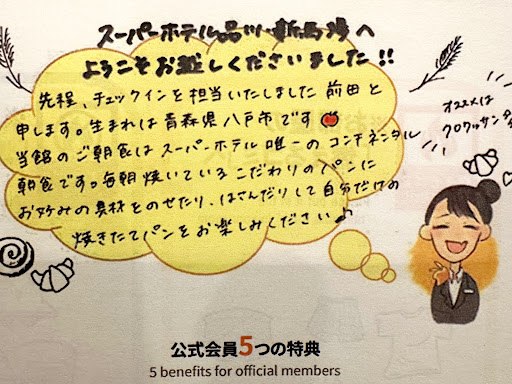 スーパーホテル品川・新馬場へ
ようこそお越しくださいました!!
先程、チェックインを担当いたしました前田と
申します。生まれは青森県八戸市です
当館のご朝食はスーパーホテル唯一のコンチネンタル
朝食です。毎朝焼いているこだわりのパンに
お好みの具材をのせたり、はさんだりして自分だけの
焼きたてパンをお楽しみください♪
オススメは
クロワッサンタ
公式会員5つの特典
5 benefits for official members